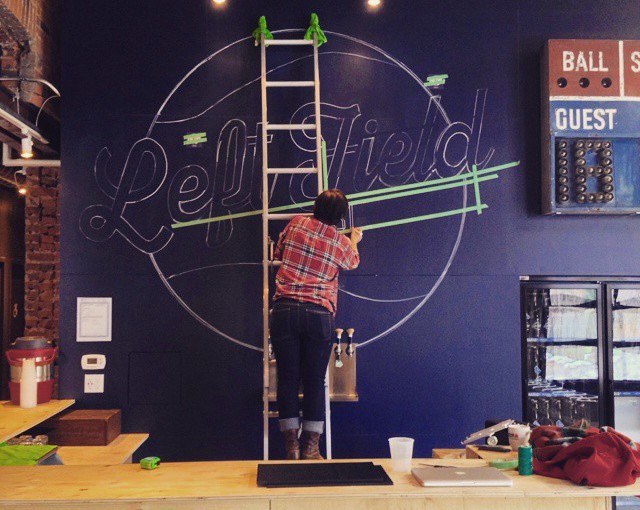 Left Field
BALL S
GUEST